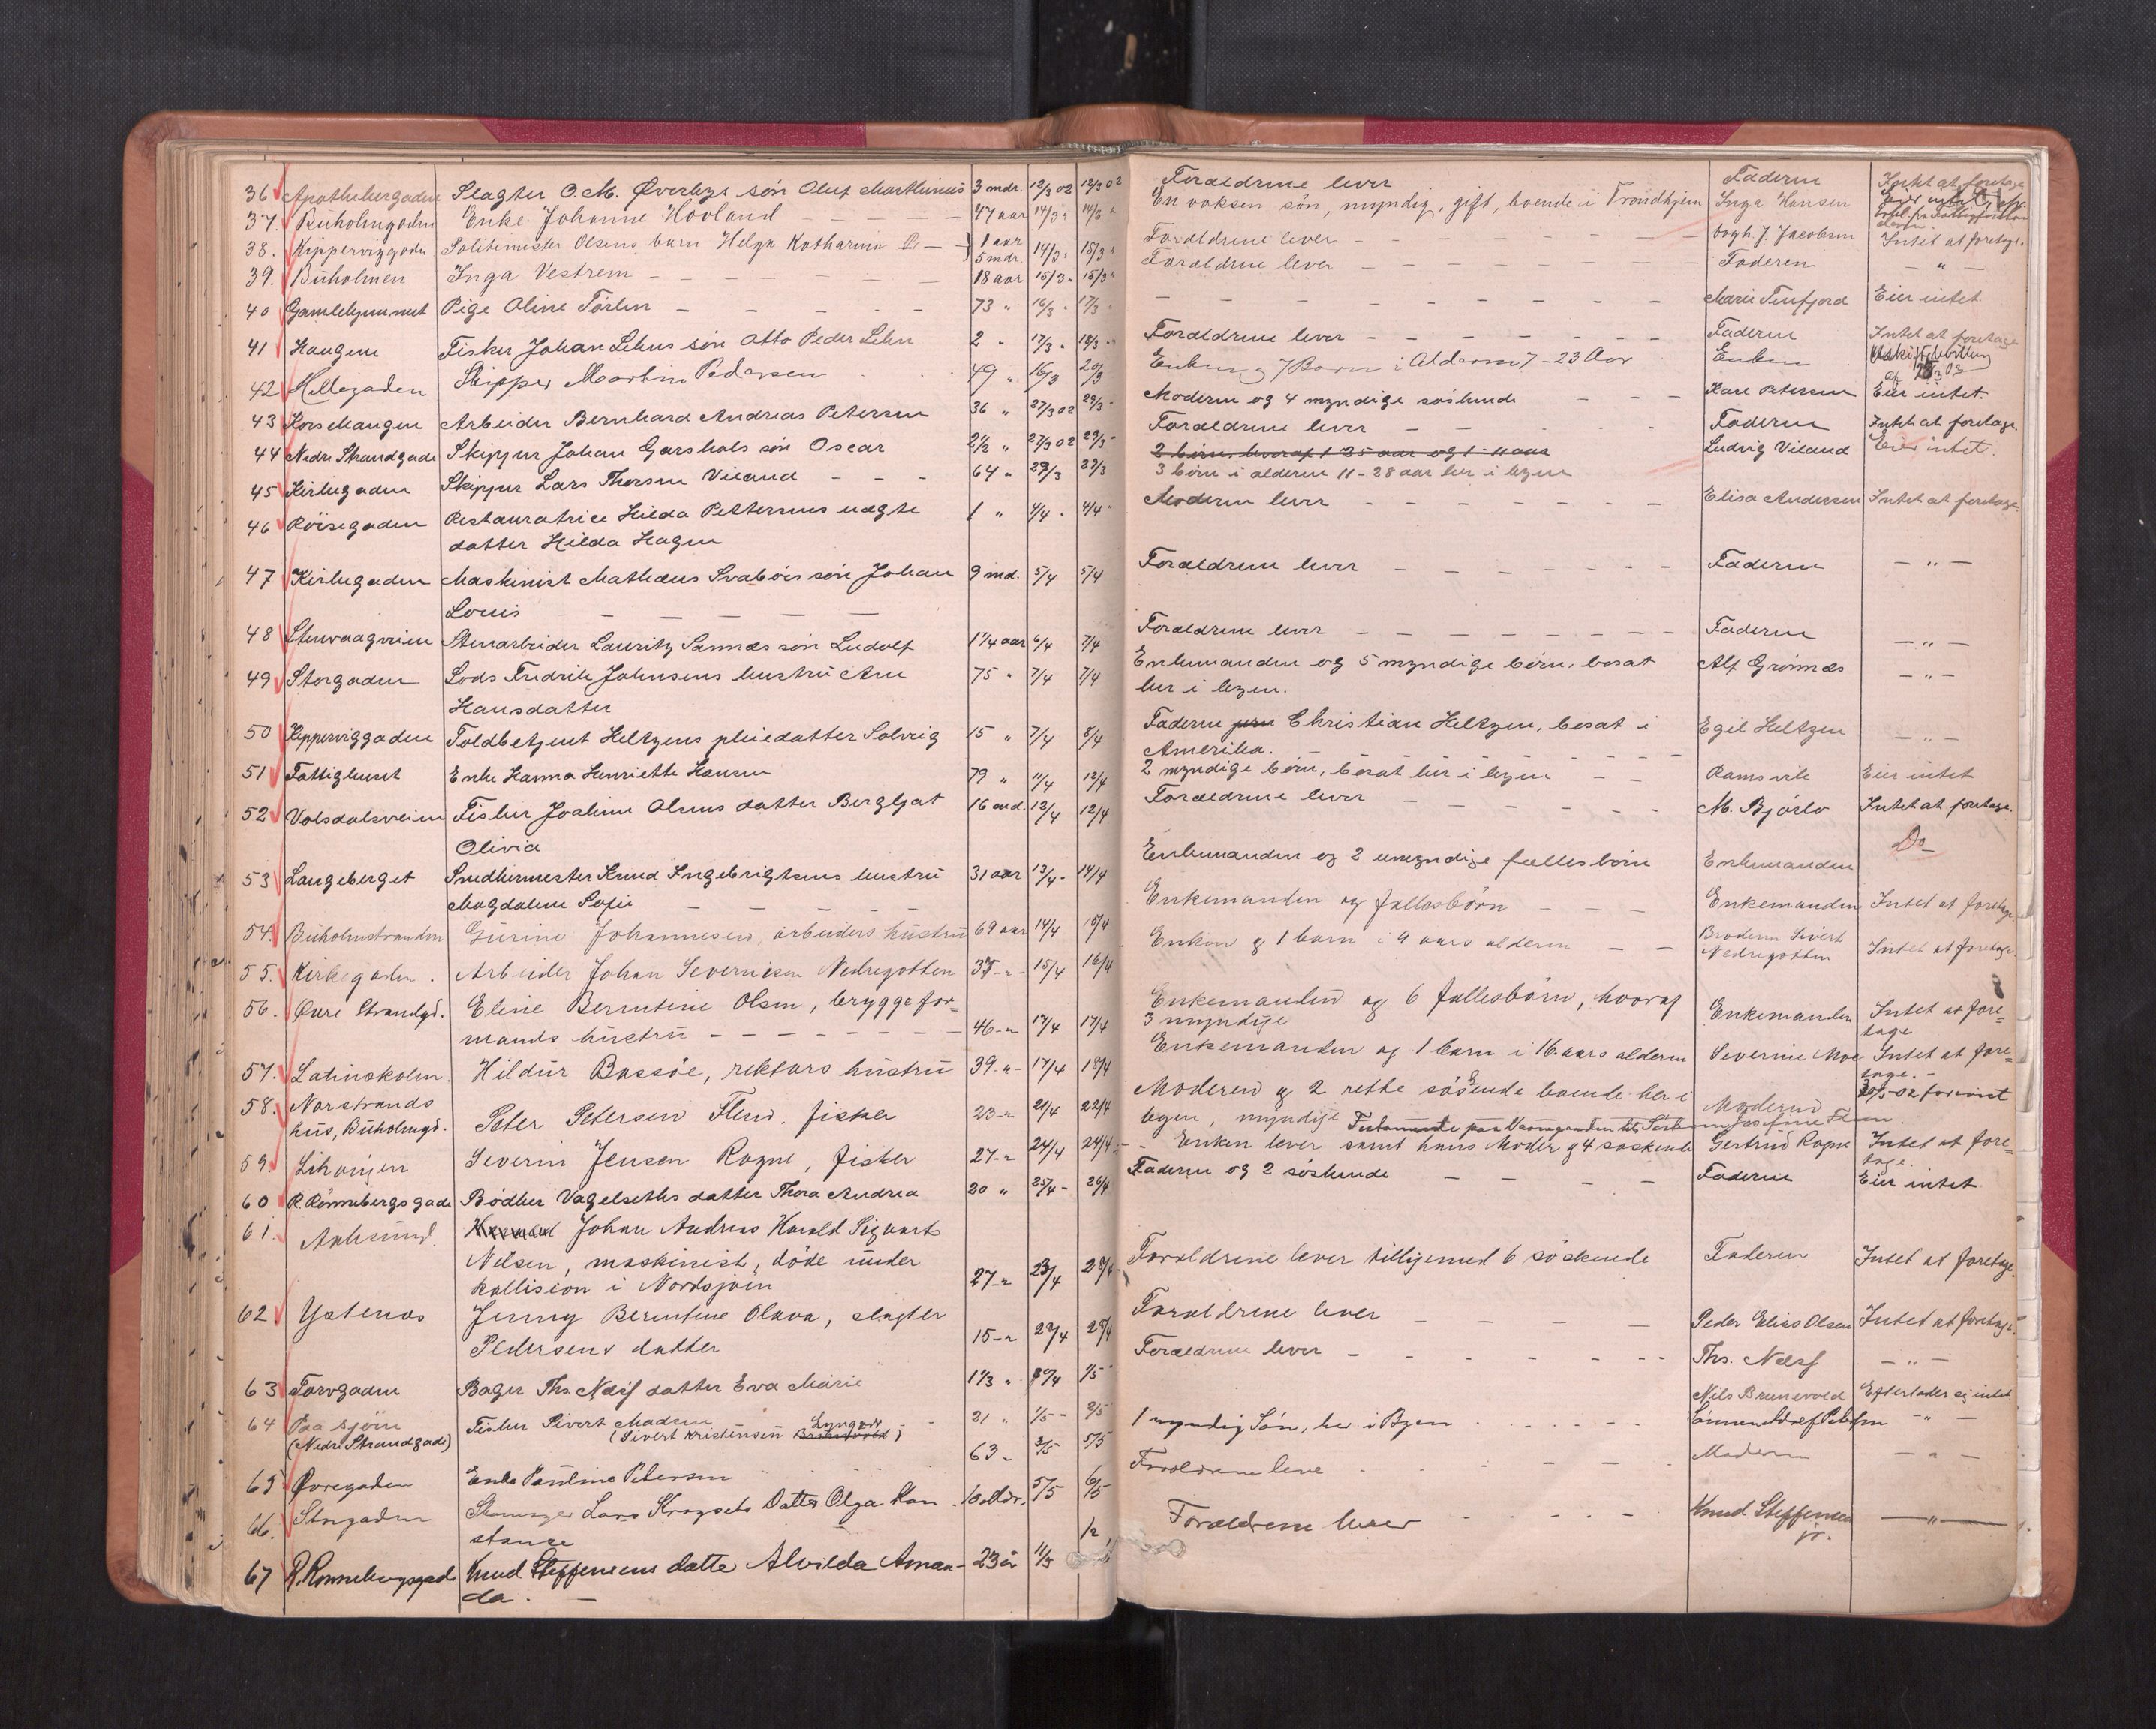 36 Apothekergaden Slagter O. M. Øverbyes søn Oluf Marthinius 3 mdr. 12/3 02 12/3 02 Forældrene lever Faderen Intet at foretage
37. Buholmgaden Enke Johanne Hovland — — — — 47 aar 14/3 " 14/3 " En voksen søn, myndig, gift, boende i Trondhjem Inga Hansen
38. Kipperviggaden Politimester Olsens barn Helga Katharina 1 aar 5 mdr. 14/3 " 15/3 " Forældrene lever — — — — J. Jacobsen Intet at foretage.
39. Buholmen Inga Vestrem — — — 18 aar 15/3 - 15/3 " Forældrene lever — — — — Faderen — " —
40 Pige Oline — — — — 73 " 16/3 " 17/3 — — — — — — Marie Tenfjord Eier intet
41 Haugen Fisker Johan Lehns søn Otto Peder Lehn 2 " 17/3 " 18/3 " Forældrene lever — — — — Faderen Intet at foretage
42 Skipper Martin Pedersen 49 " 16/3 20/3 Enken og 7 Børn i Alderen 7 - 23 Aar Enken
43 Korshaugen Arbeider Bernhard Andreas Petersen 36 " 27/3 02 29/3 - Moderen og 4 myndige søskende — — — Kare Petersen Eier intet.
44 Nedre Strandgade Skipper Johan Garshols søn Oscar 2 1/2 " 27/3 02 29/3 - Forældrene lever — — Faderen Intet at foretage
45 Kirkegaden Skipper Lars Thorsen Vieland — — — 64 " 29/3 29/3 2 børn, hvoraf 1 25 aar og 1 - 11 aar Ludvig Vieland Eier intet.
3 børn i alderen 11 - 28 aar her i byen
46 Röisegaden Restauratrice Hilda Pettersens uægte 1 " 4/4 - 4/4 - Moderen lever — — — — — Elisa Andersen Intet at foretage
datter Hilda Hagen
47 Kirkegaden Maskinist Mathæus Svabøes søn Johan 9 md. 5/4 5/4 Forældrene lever — — — — — Faderen — " —
Louis — — — —
48 Stenvaagveien Stenarbeider Lauritz Sannæs søn Ludolf 1 1/4 aar 6/4 7/4 Forældrene lever — — — — — Faderen — " —
49 Storgaden Lods Fredrik Johnsens hustru Ane 75 " 7/4 7/4 Enkemanden og 5 myndige børn, bosat Alf Grönnæs — " —
Hansdatter her i byen.
50 Kipperviggaden Toldbetjent Heltzens pleiedatter Solveig 15 " 7/4 8/4 Faderen Christian Heltzen, bosat i Egil Heltzen — " —
Amerika. — — — —
51 Fattighuset Enke Hanna Henriette Hansen 79 " 11/4 12/4 2 myndige børn, bosat her i byen — — Ramsvik Eier intet
52 Volsdalsveien Fisker Joakim Olsens datter Bergljot 16 md. 12/4 12/4 Forældrene lever — — — — — M. Bjørlo Intet at foretage.
Olivia
53 Langeberget Snedkermester Knud Ingebrigtsens hustru 31 aar 13/4 - 14/4 Enkemanden og 2 umyndige fællesbörn Enkemanden Do
Magdalene Sofie — — — —
54. Buholmstranden Gurine Johannesen, arbeiders hustru 69 aar 14/4 15/4 Enkemanden og fællesbörn — — — Enkemanden Intet at foretage
55. Kirkegaden. Arbeider Johan Severinsen Nedregotten 35 - " - 15/4 16/4 Enken og 1 barn i 9 aars alderen — — Broderen Sivert Nedregotten Intet at foretage
56. Øvre Strandgd. Eline Berntine Olsen, bryggefor= Enkemanden og 6 fællesbörn, hvoraf Enkemanden Intet at fore=
mands hustru — — — — — — 46 - " 17/4 17/4 3 myndige tage
57. Latinskolen. Hildur Bassöe, rektors hustru 39 - " - 17/4 18/4 Enkemanden og 1 barn i 16. aars alderen Severine Moe Intet at fore= tage. -
58. Norstrands Peter Petersen Flem, fisker 23 - " 21/4 22/4 Moderen og 2 rette söskende boende her i Moderen 30/5 - 02
hus, Buholmgd. byen, myndige
59. Lihaugen Severin Jensen Rogne, fisker 27 - " 24/4 24/4 - Enken lever samt hans Moder og 4 søskende Gertrud Rogne Intet at fore= tage.
60 R. Rønnebergs gade Bødker Vagelseths datter Thora Andrea 20 " 25/4 - 26/4 Faderen og 2 søskende — — — — Faderen Eier intet
61. Aalesund. Johan Andreas Harald Sigvart
Nilsen, maskinist, döde under
kollision i Nordsjøen 27 - " 23/4 28/4 Forældrene lever tilligemed 6 söskende Faderen Intet at foretage.
62 Ystenæs Jenny Berntine Olava, slagter
Pedersens datter 15 - " 27/4 28/4 Forældrene lever — — — — Peder Elias Olsen Intet at foretage.
63 Torvgaden Bager Ths. Næss datter Eva Marie 1 1/3 " 30/4 1/5 Forældrene lever — — — — Ths. Næss — " —
64 Paa sjøen Fisker Sivert Madsen 21 " 1/5 - 3/5 Nils Brunsvold Efterlader sig intet.
(Nedre Strandgade) (Sivert Kristensen )
65 Øvregaden Enke Pauline Petersen 63 " 3/5 5/5 1 myndig Søn, her i Byen Sønnen — " —
66. Storgaden Lars Krogseths Datter Olga Kon 10 Mdr. 5/5 6/5 Forældrene leve Moderen — " —
stance
67 R. Rønnebergsgade Knud Steffensens datte Alvilda Aman- 23 år 11/5 Forældrene lever Knud Steffensen jr. — " —
da. —